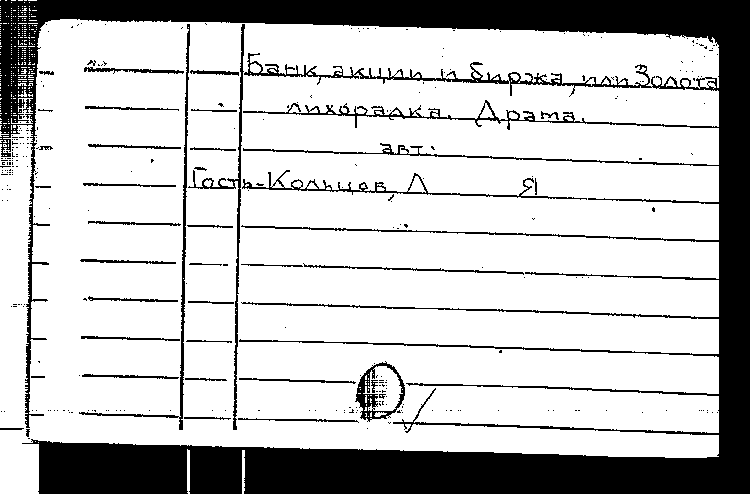 Банк, акции и биржа, или Золота
лихорадка. Драма.
авт:
Гость-Кольцов, Л Я